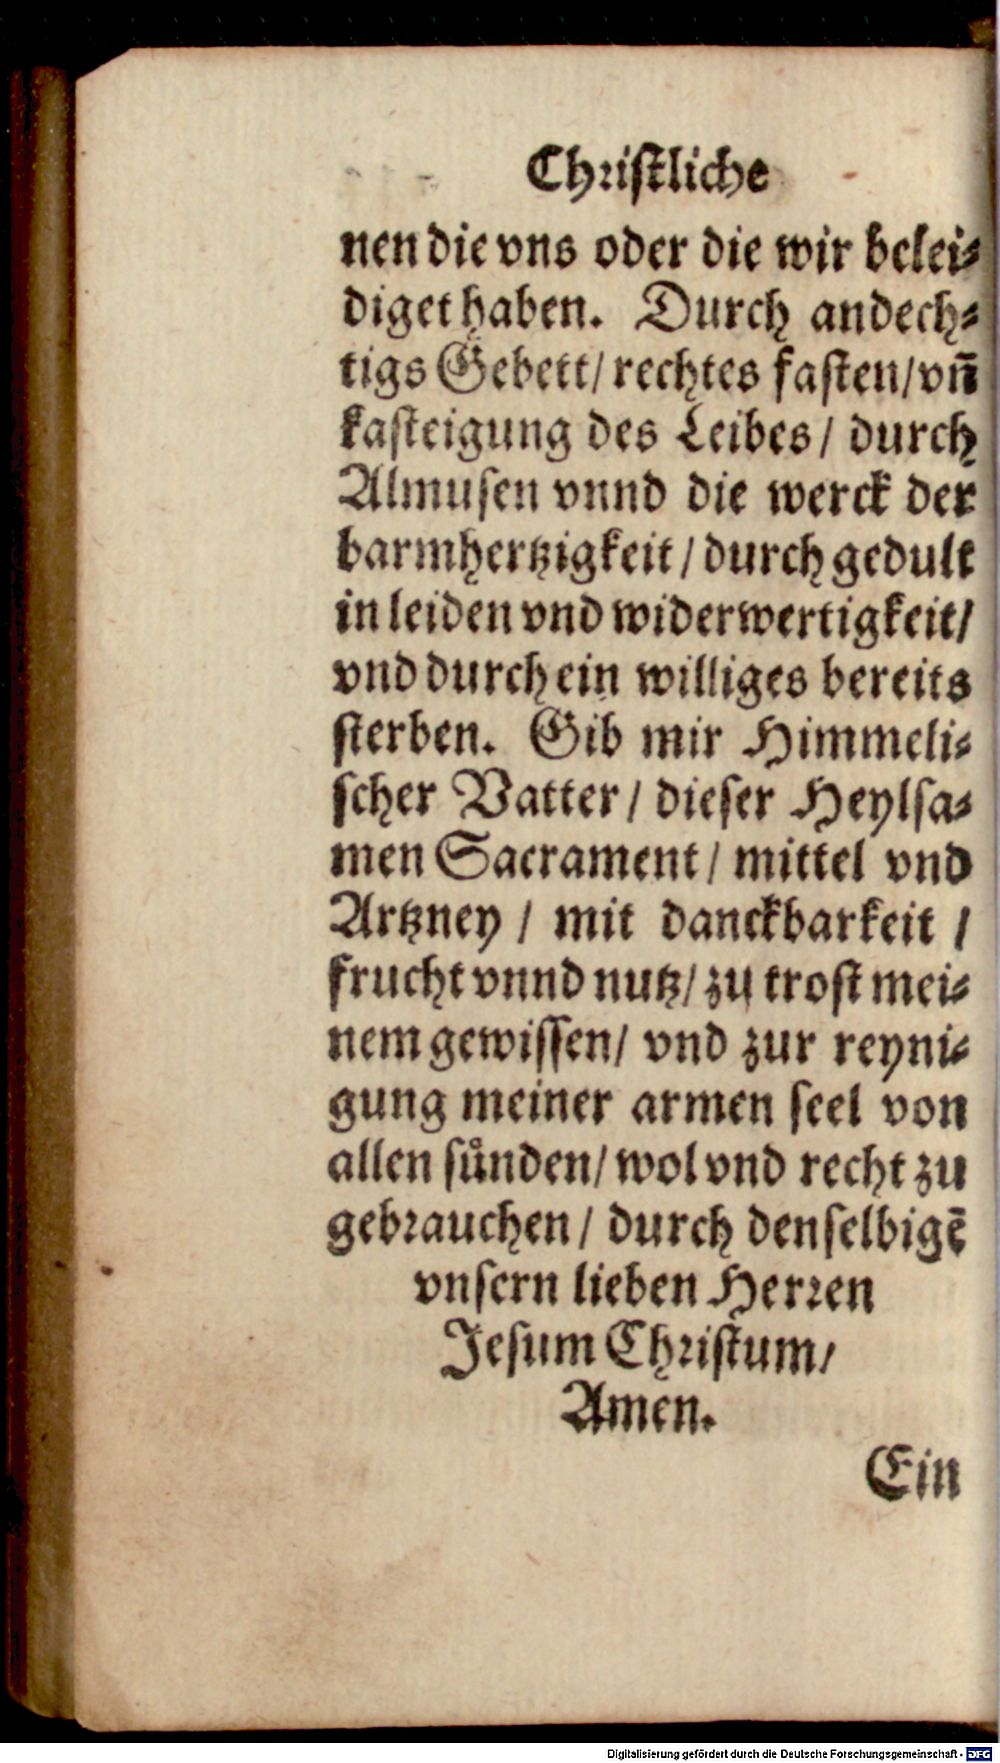 Christliche
nen die vns oder die wir belei⸗
diget haben. Durch andech⸗
tigs Gebett/ rechtes fasten/ vn̄
kasteigung des Leibes/ durch
Almusen vnnd die werck der
barmhertzigkeit/ durch gedult
in leiden vnd widerwertigkeit/
vnd durch ein williges bereits
sterben. Gib mir Himmeli⸗
scher Vatter/ dieser Heylsa⸗
men Sacrament/ mittel vnd
Artzney / mit danckbarkeit /
frucht vnnd nutz/ zu trost mei⸗
nem gewissen/ vnd zur reyni⸗
gung meiner armen seel von
allen sůnden/ wol vnd recht zu
gebrauchen/ durch denselbigē
vnsern lieben Herren
Jesum Christum/
Amen.
Ein
Digitalisierung gefördert durch die Deutsche Forschungsgemeinschaft - DFG